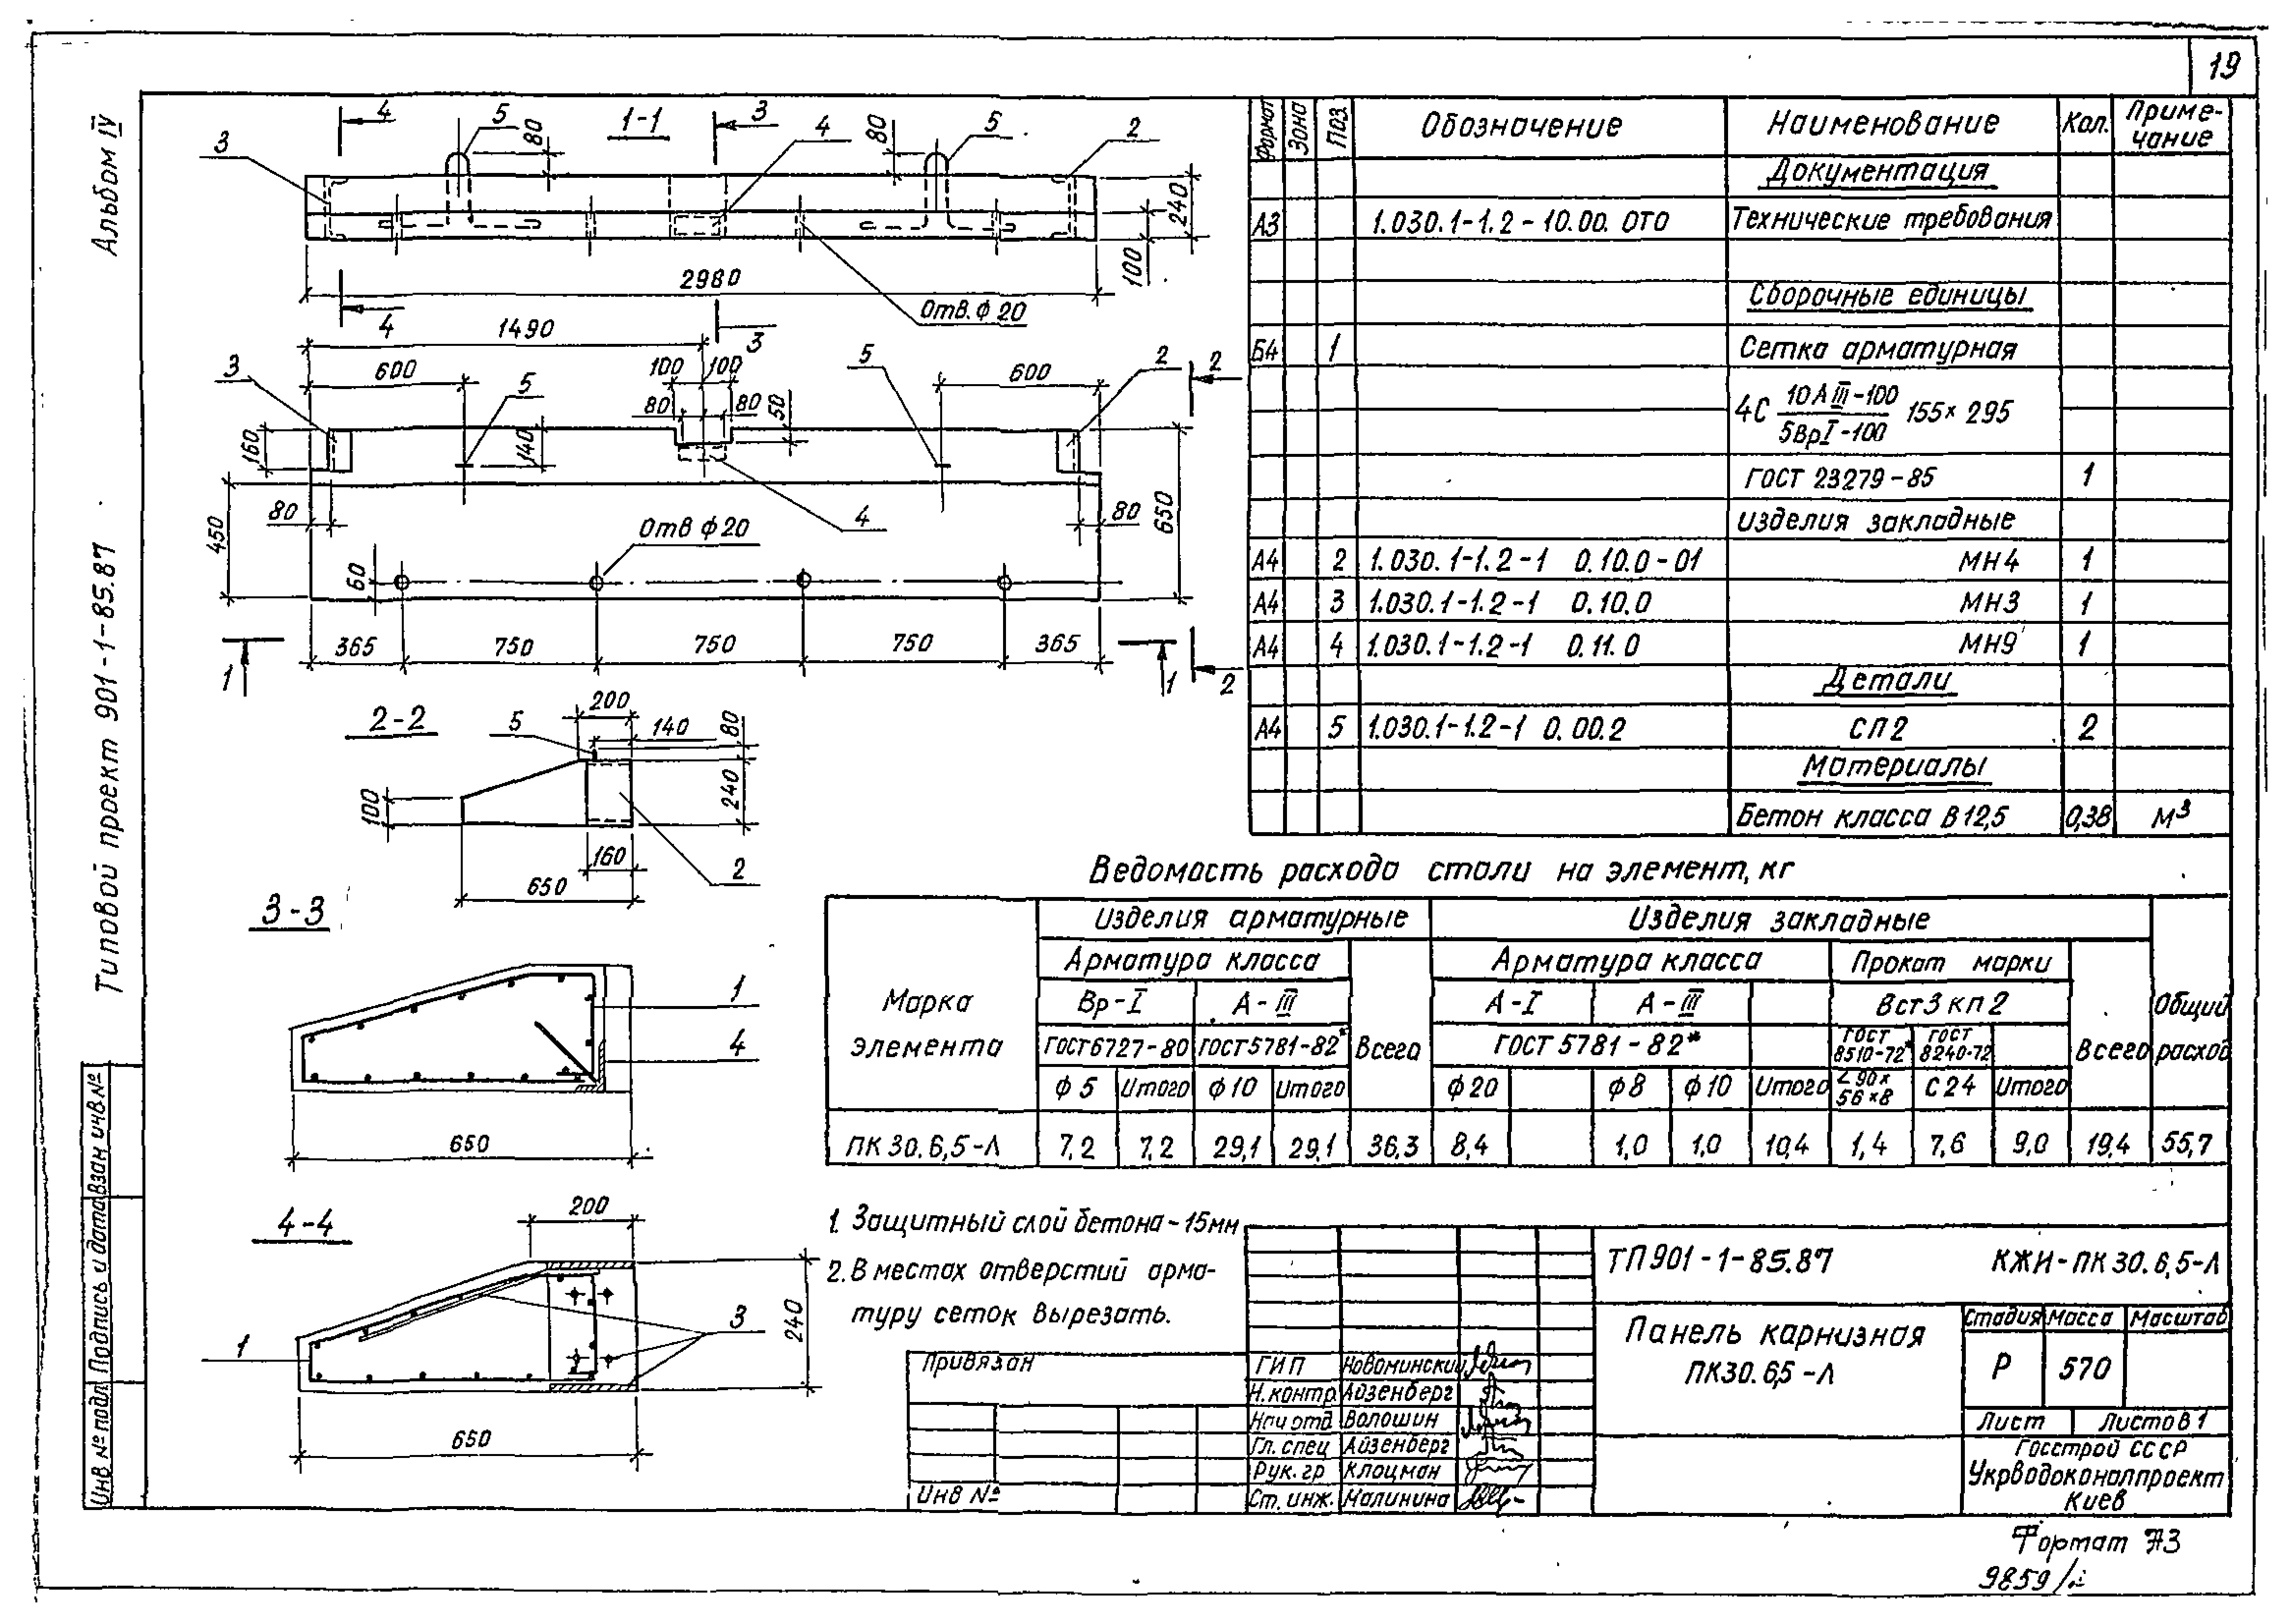 19
Альбом IV
Типовой проект 901-1-85.87
Инв № подл Подпись и дата Взам инв №
4 5 80 1-1 3 4 80 5 2
3
240
100
2980
4 Отв. ф 20
3
1490
3 600 5 100 100 5 600 2 2
80 80 50
160 140
450 80 Отв ф 20 4 80 650
60
365 750 750 750 365
1 1 2
2-2 5 200 140 80
100 240
160 2
650
3-3
1
4
650
4-4 200
3 240
1
650
Формат Зона Поз. Обозначение Наименование Кол. Приме-
чание
Документация
А3 1.030.1-1.2-10.00.ОТО Технические требования
Сборочные единицы
Б4 1 Сетка арматурная
4С 10АIII-100 155×295
5ВрI-100
ГОСТ 23279-85 1
Изделия закладные
А4 2 1.030.1-1.2-1 0.10.0-01 МН4 1
А4 3 1.030.1-1.2-1 0.10.0 МН3 1
А4 4 1.030.1-1.2-1 0.11.0 МН9 1
Детали
А4 5 1.030.1-1.2-1 0.00.2 СП2 2
Материалы
Бетон класса В12,5 0,38 м3
Ведомость расхода стали на элемент, кг
Марка элемента Изделия арматурные Изделия закладные Общий расход
Арматура класса Всего Арматура класса Прокат марки Всего
Вр-I А-III А-I А-III Вст3кп2
ГОСТ6727-80 ГОСТ5781-82* ГОСТ 5781-82* ГОСТ 8510-72* ГОСТ 8240-72
ф5 Итого ф10 Итого ф20 ф8 ф10 Итого ∠90×56×8 С24 Итого
ПК30.6,5-Л 7,2 7,2 29,1 29,1 36,3 8,4 1,0 1,0 10,4 1,4 7,6 9,0 19,4 55,7
1. Защитный слой бетона-15мм
2. В местах отверстий арма-
туру сеток вырезать.
Привязан
Инв №
ГИП Новоминский
Н.контр Айзенберг
Нач отд Волошин
Гл. спец Айзенберг
Рук. гр Клоцман
Ст. инж. Малинина
ТП901-1-85.87 КЖИ-ПК30.6,5-Л
Панель карнизная
ПК30.6,5-Л
Стадия Масса Масштаб
Р 570
Лист Листов 1
Госстрой СССР
Укрводоканалпроект
Киев
Формат А3
9859/